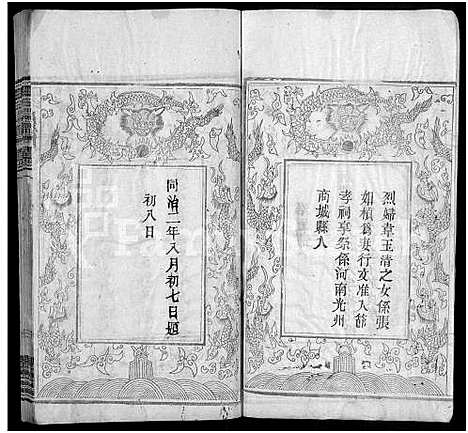 烈婦韋玉清之女係張
如槓為妻行文准入節
孝祠享祭係河南光州
商城縣人
同治二年八月初七日題
初八日